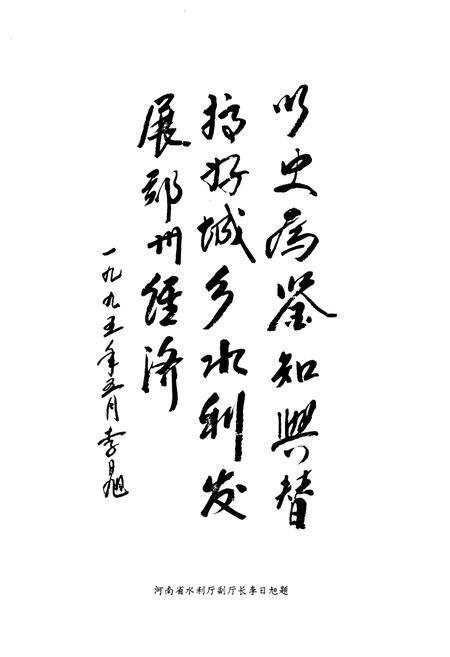 以史为鉴知興替
搞好城乡水利发
展郑州经济
一九九五年五月李日旭
河南省水利厅副厅长李日旭题